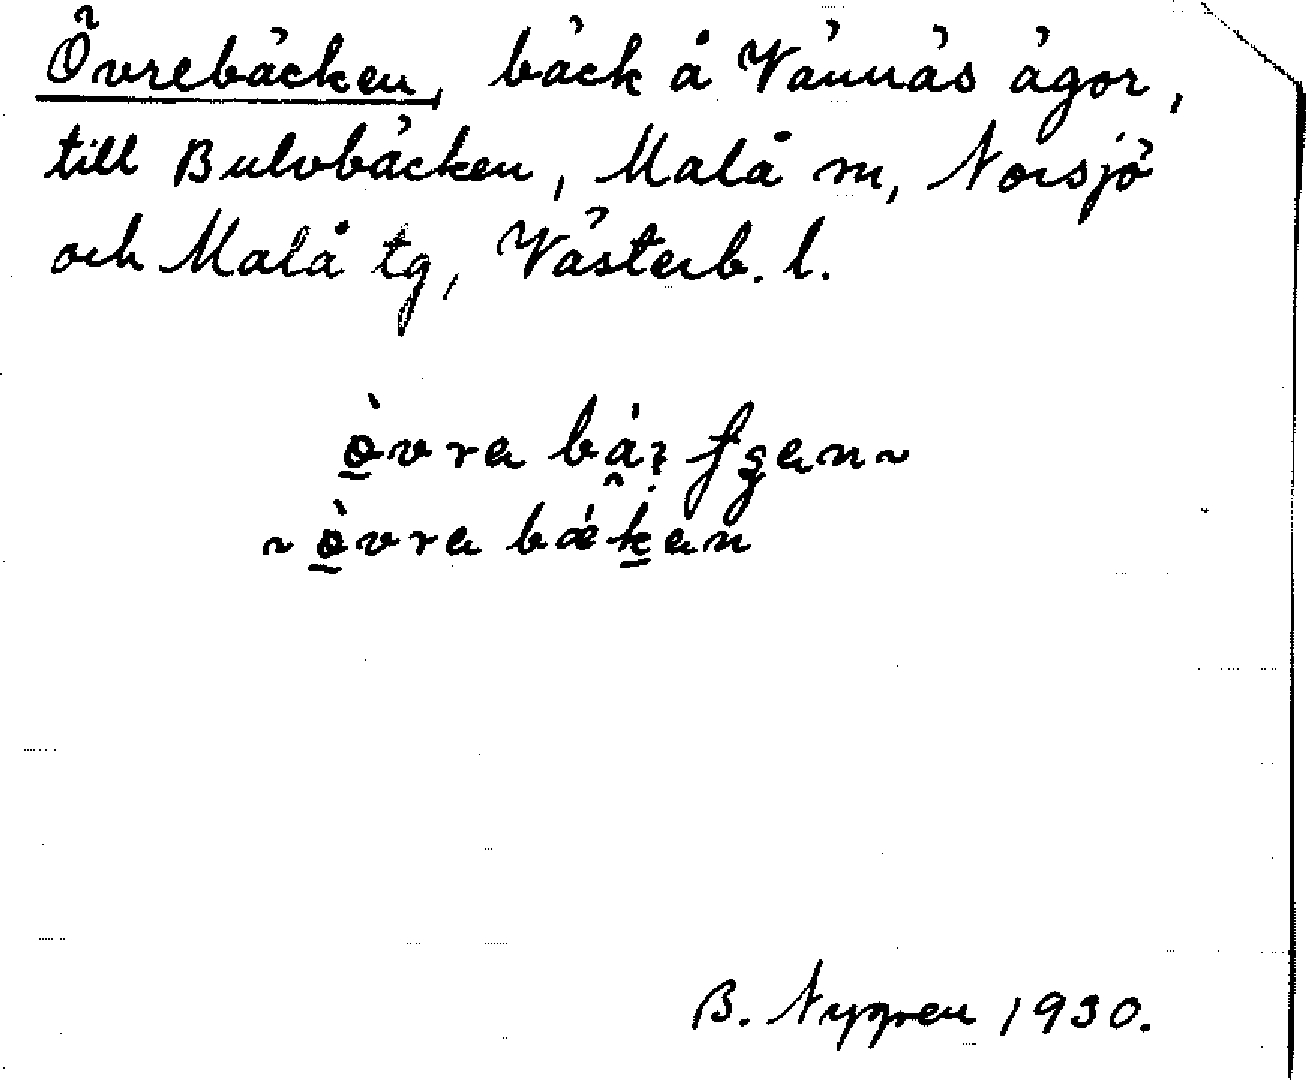 Övrebäcken, bäck å Vännäs ägor,
till Bulvbäcken, Malå sn, Norsjö
och Malå tg, Västerb. l.
òvra
~ òvra bǽkan
B. Nygren 1930.